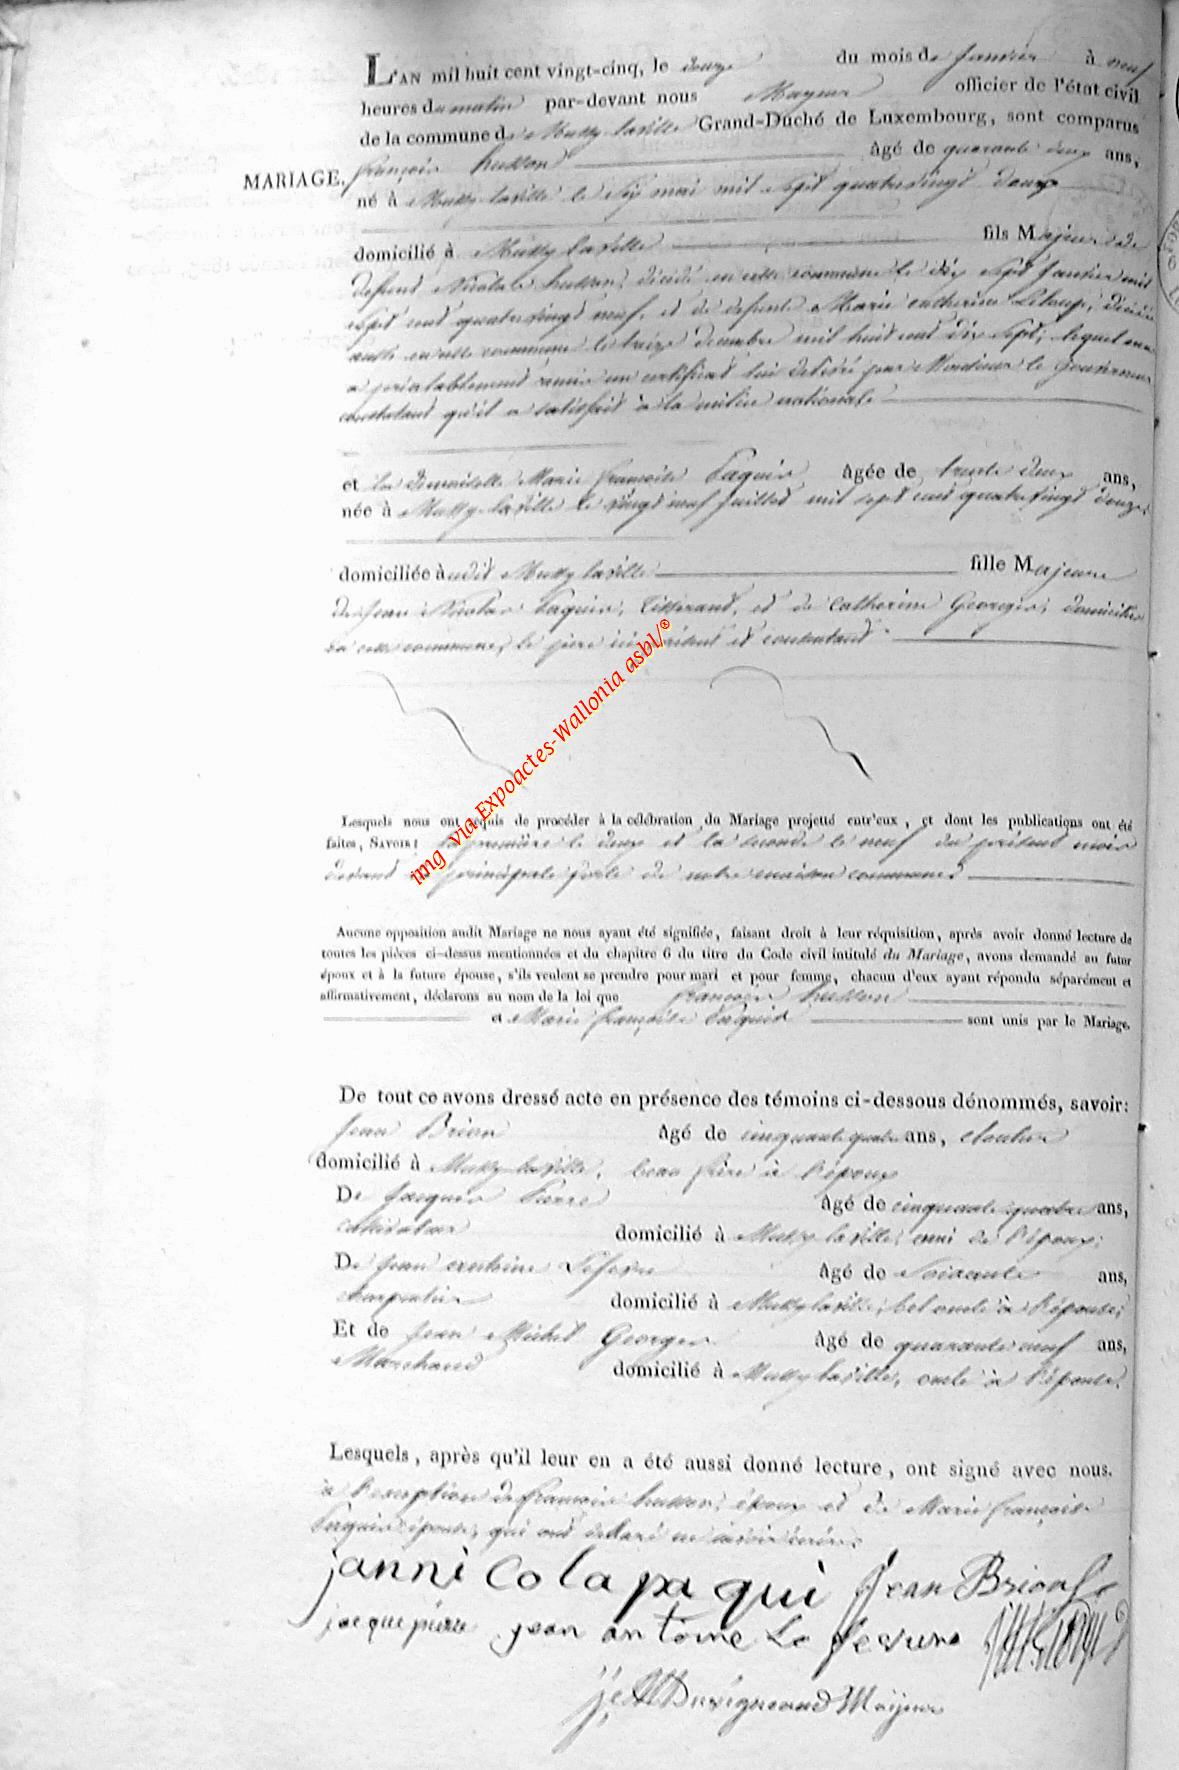 L'AN mil huit cent vingt-cinq, le douze du mois de Janvier à neuf
heures du matin par-devant nous Mayeur officier de l'état civil
de la commune de Mussy-laville Grand-Duché de Luxembourg, sont comparus
MARIAGE. françois husson âgé de quarante deux ans,
né à Mussy-laville le Six mai mil Sept quatrevingt douze
domicilié à Mussy laville fils Majeur de
defunt Nicolas husson, décédé en cette commune le dix Sept Janvier mil
Sept cent quatrevingt neuf, et de defunte Marie catherine Leloup, décédée
aussi en cette commune le treize decembre mil huit cent dix Sept, lequel
a préalablement remis un certificat lui delivré par Monsieur le Gouverneur
constatant qu'il a satisfait à la milice nationale
et la demoiselle Marie françoise Paquis âgée de trente deux ans,
née à Mussy-laville le vingt neuf juillet mil sept cent quatrevingt douze,
domiciliée audit Mussy laville fille Majeure
de Jean Nicolas Paquis, tisserand, et de Catherine Georges, domiciliés
en cette commune, le père ici présent et consentant
Lesquels nous ont requis de procéder à la célébration du Mariage projetté entr'eux, et dont les publications ont été
faites, SAVOIR: la première le deux et la seconde le neuf du présent mois
devant la principale porte de notre maison commune
Aucune opposition audit Mariage ne nous ayant été signifiée, faisant droit à leur réquisition, après avoir donné lecture de
toutes les pièces ci-dessus mentionnées et du chapitre 6 du titre du Code civil intitulé du Mariage, avons demandé au futur
époux et à la future épouse, s'ils veulent se prendre pour mari et pour femme, chacun d'eux ayant répondu séparément et
affirmativement, déclarons au nom de la loi que françois husson
et Marie françoise Paquis sont unis par le Mariage.
De tout ce avons dressé acte en présence des témoins ci-dessous dénommés, savoir:
Jean Brion âgé de cinquante quatre ans, cloutier
domicilié à Mussy-laville, beau frère à l'époux
De Jacques Pierre âgé de cinquante quatre ans,
cultivateur domicilié à Mussy laville, ami de l'époux;
De Jean antoine Lefevre âgé de Soixante ans,
charpentier domicilié à Mussy laville, bel oncle à l'épouse;
Et de Jean Michel Georges âgé de quarante neuf ans,
Marchand domicilié à Mussy laville, oncle à l'épouse.
Lesquels, après qu'il leur en a été aussi donné lecture, ont signé avec nous.
à l'exception de françois husson, époux et de Marie françoise
Paquis épouse, qui ont déclaré ne savoir écrire.
janni cola pa qui Jean Brion
jacque pierre jean antoine Le fevre
Duvigneaud Maÿeur
img via Expoactes-Wallonia asbl/®